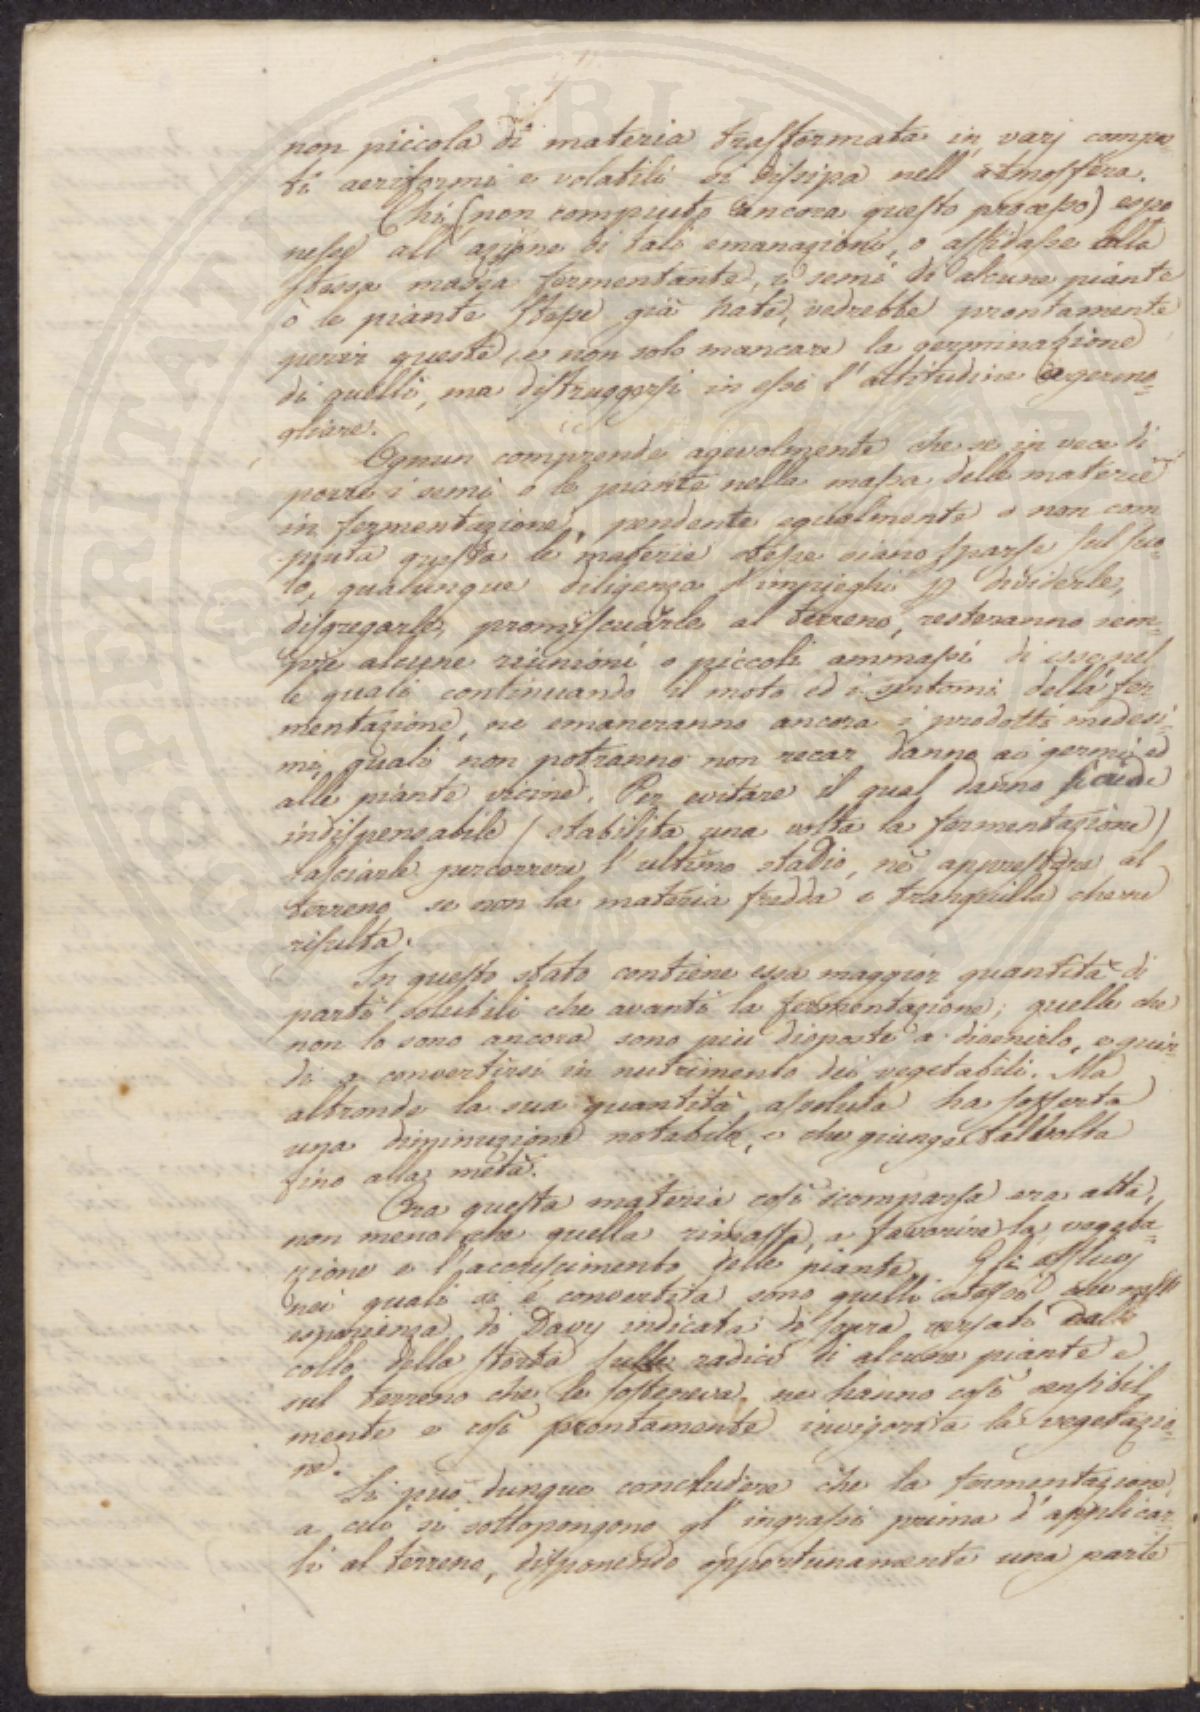 non piccola di materia trasformata in varj compo
ti aeriformi e volatili si dissipa nell'atmosfera.
Chi (non compiuto ancora questo processo) espo
nesse all'azione di tali emanazioni, o affidasse alla
stessa massa fermentante, i semi di alcune piante
ò le piante stesse già nate, vedrebbe prontamente
perir queste, e non solo mancare la germinazione
di quelli, ma distruggersi in essi l'attitudine a germo-
gliare.
Ognun comprende agevolmente che se in vece di
porre i semi o le piante nella massa delle materie
in fermentazione, pendente egualmente o non com
piuta questa le materie stesse siano sparse sul suo-
lo, qualunque diligenza s'impieghi p dividerle,
disgregarle, promiscuarle al terreno, resteranno sem-
pre alcune riunioni o piccoli ammassi di esse nel
le quali continuando il moto ed i sintomi della fer
mentazione, ne emaneranno ancora i prodotti medesi-
mi, quali non potranno non recar danno ai germi ed
alle piante vicine. Per evitare il qual danno
indispensabile (stabilita una volta la fermentazione)
lasciarle percorrere l'ultimo stadio, nè apprestare al
terreno se non la materia fredda e tranquilla che ne
risulta.
In questo stato contiene essa maggior quantità di
parti solubili che avanti la fermentazione; quelle che
non lo sono ancora sono più disposte a divenirlo, e quin-
di a convertirsi in nutrimento dei vegetabili. Ma
altronde la sua quantità assoluta ha sofferta
una diminuzione notabile, e che giunge tallvolta
fino alla metà.
Ora questa materia così scomparsa era atta,
non meno che quella rimasta, a favorire la vegeta-
zione e l'accrescimento delle piante. Gli effluvj
nei quali si è convertita sono quelli stessi che nell
esperienza di Davy indicata di sopra versati dal
collo della storta sulle radici di alcune piante e
sul terreno che le sosteneva ne hanno così sensibil
mente e così prontamente invigorita la vegetazio-
ne.
Si può dunque concludere che la fermentazione
a cui si sottopongono gl'ingrassi prima d'applicar
li al terreno, disponendo opportunamente una parte